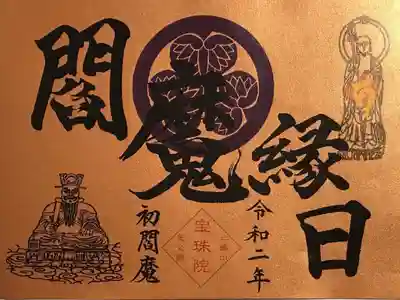 閻魔
縁日
令和二年
初閻魔
宝珠院